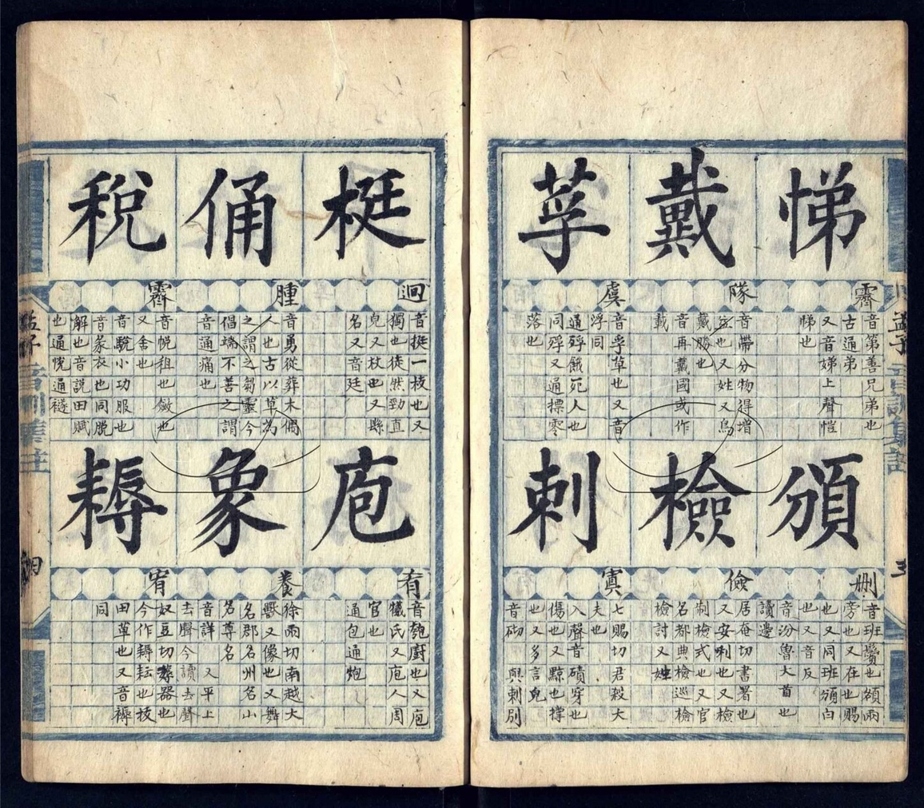 悌
霽
音第善兄弟也
古通弟
又音娣上聲愷
悌也
戴
隊
音帶分物得增
益也又姓又烏
戴勝也
音再戴國或作
載
莩
虞
音孚草也又音
浮同
通殍餓死人也
同殍又通摽零
落也
頒
删
音班鬓也頒兩
旁也又在也賜
也又同班頒白
也又音反
音汾魯大首也
讀邊
檢
儉
居奄切書署也
又安制也又
制檢式也又官
名都典檢巡檢
檢討又姓
刺
寘
七賜切君殺大
夫也
入聲音磧穿也
傷也又黥也撑
也又多言皃
音砌 與剌别
梃
迥
音挺一枝也又
獨也徒然勁直
皃又杖也又縣
名又音廷
俑
腫
音勇從葬木偶
人也古以草為
之謂之芻靈今
倡端不善之謂
音通痛也
稅
霽
音帨租也斂也
又舍也
音駾小功服也
音彖衣也同脫
解也音説田賦
也通悦通襚
庖
有
音匏廚也又庖
犧氏又庖人周
官也
通包通炮
象
養
徐雨切南越大
獸又像也又舞
名郡名州名山
名尊名
音詳 又平上
去聲今讀去聲
耨
宥
奴豆切 器也
今作耨耘也拔
田草也又音槈
同
孟子音訓集註
四